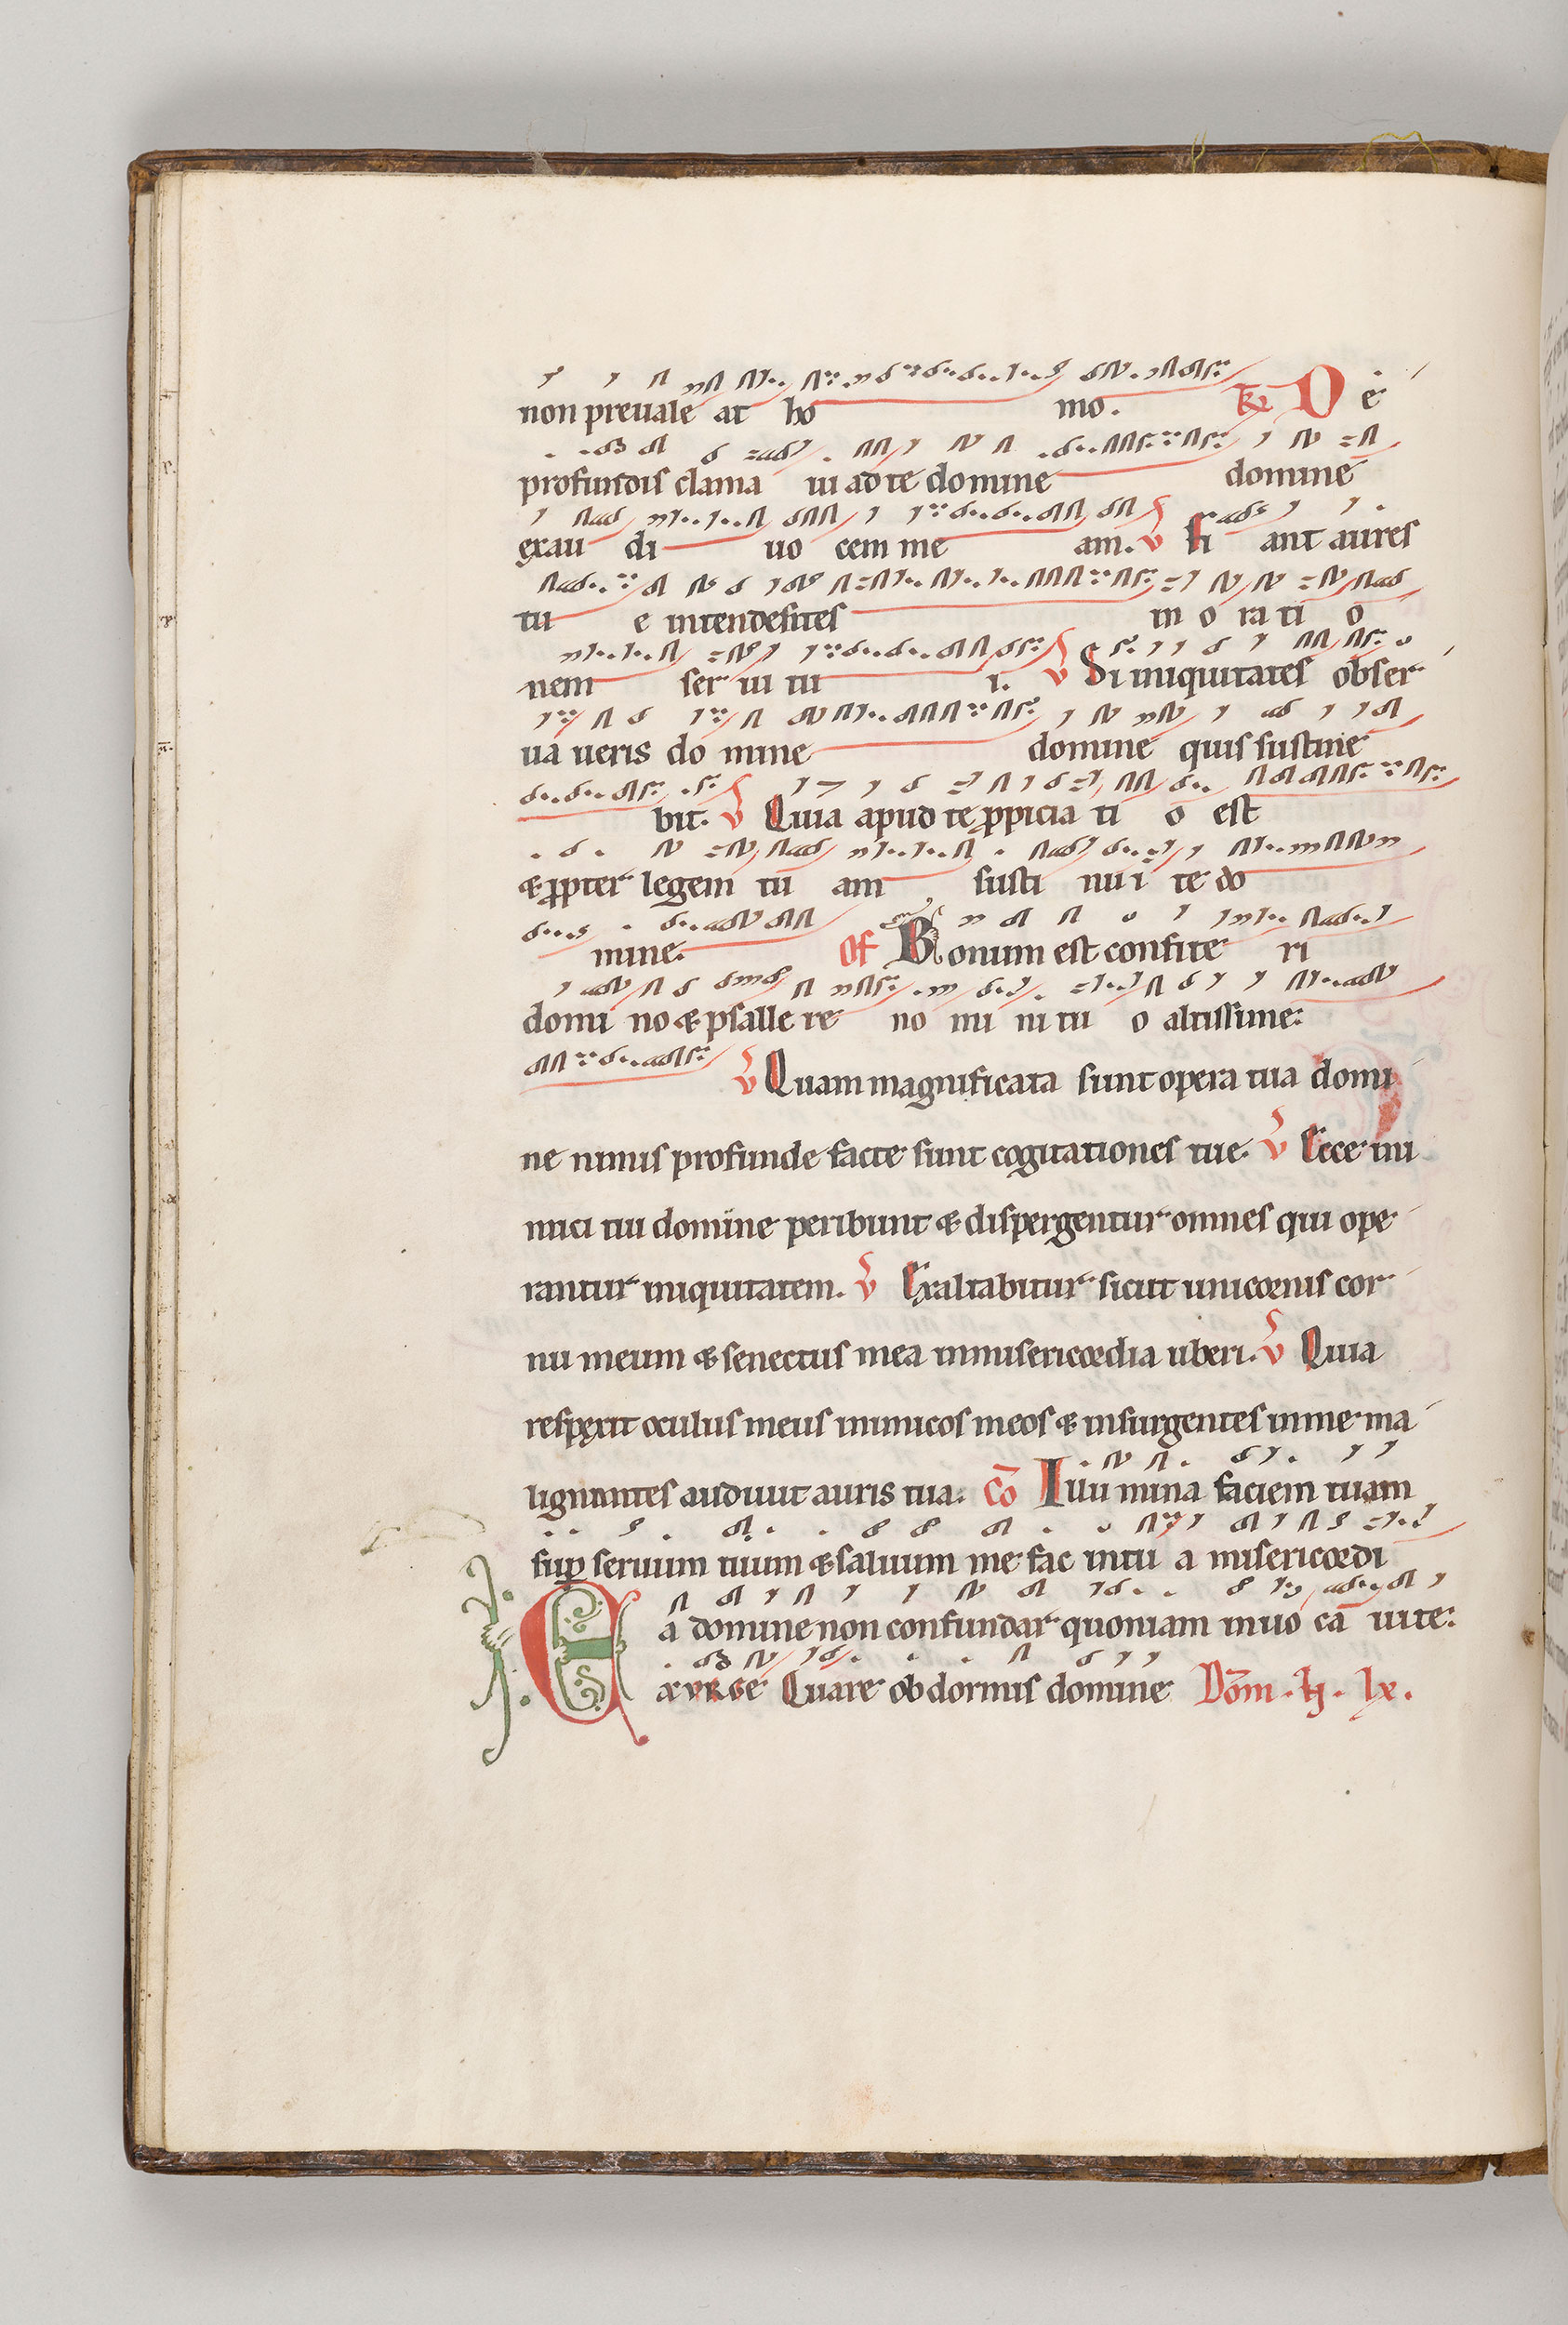 non preuale at ho mo. Tr̄ De
profundis clama ui ad te domine domine
exau di uo cem me am. v̄ Fi ant aures
tu e intendentes in o ra ti o
nem ser ui tu i. v̄ Si iniquitates obser
ua ueris do mine domine quis sustine
bit. v̄ Quia apud te ꝓpicia ti o est
& ꝓpter legem tu am susti nu i te do
mine. Of Bonum est confite ri
domi no & psalle re no mi ni tu o altissime:
v̄ Quam magnificata sunt opera tua domi
ne nimis profunde facte sunt cogitationes tue. v̄ Ecce ini
mici tui domine peribunt & dispergentur omnes qui ope
rantur iniquitatem. v̄ Exaltabitur sicut unicornis cor
nu meum & senectus mea in misericordia uberi. v̄ Quia
respexit oculus meus inimicos meos & insurgentes in me ma
lignantes audiuit auris tua. Cō Illumina faciem tuam
suꝑ seruum tuum & saluum me fac in tu a misericordi
a domine non confundar quoniam inuo cā ui te:
EXURGE Quare obdormis domine Dōm. in. lx.